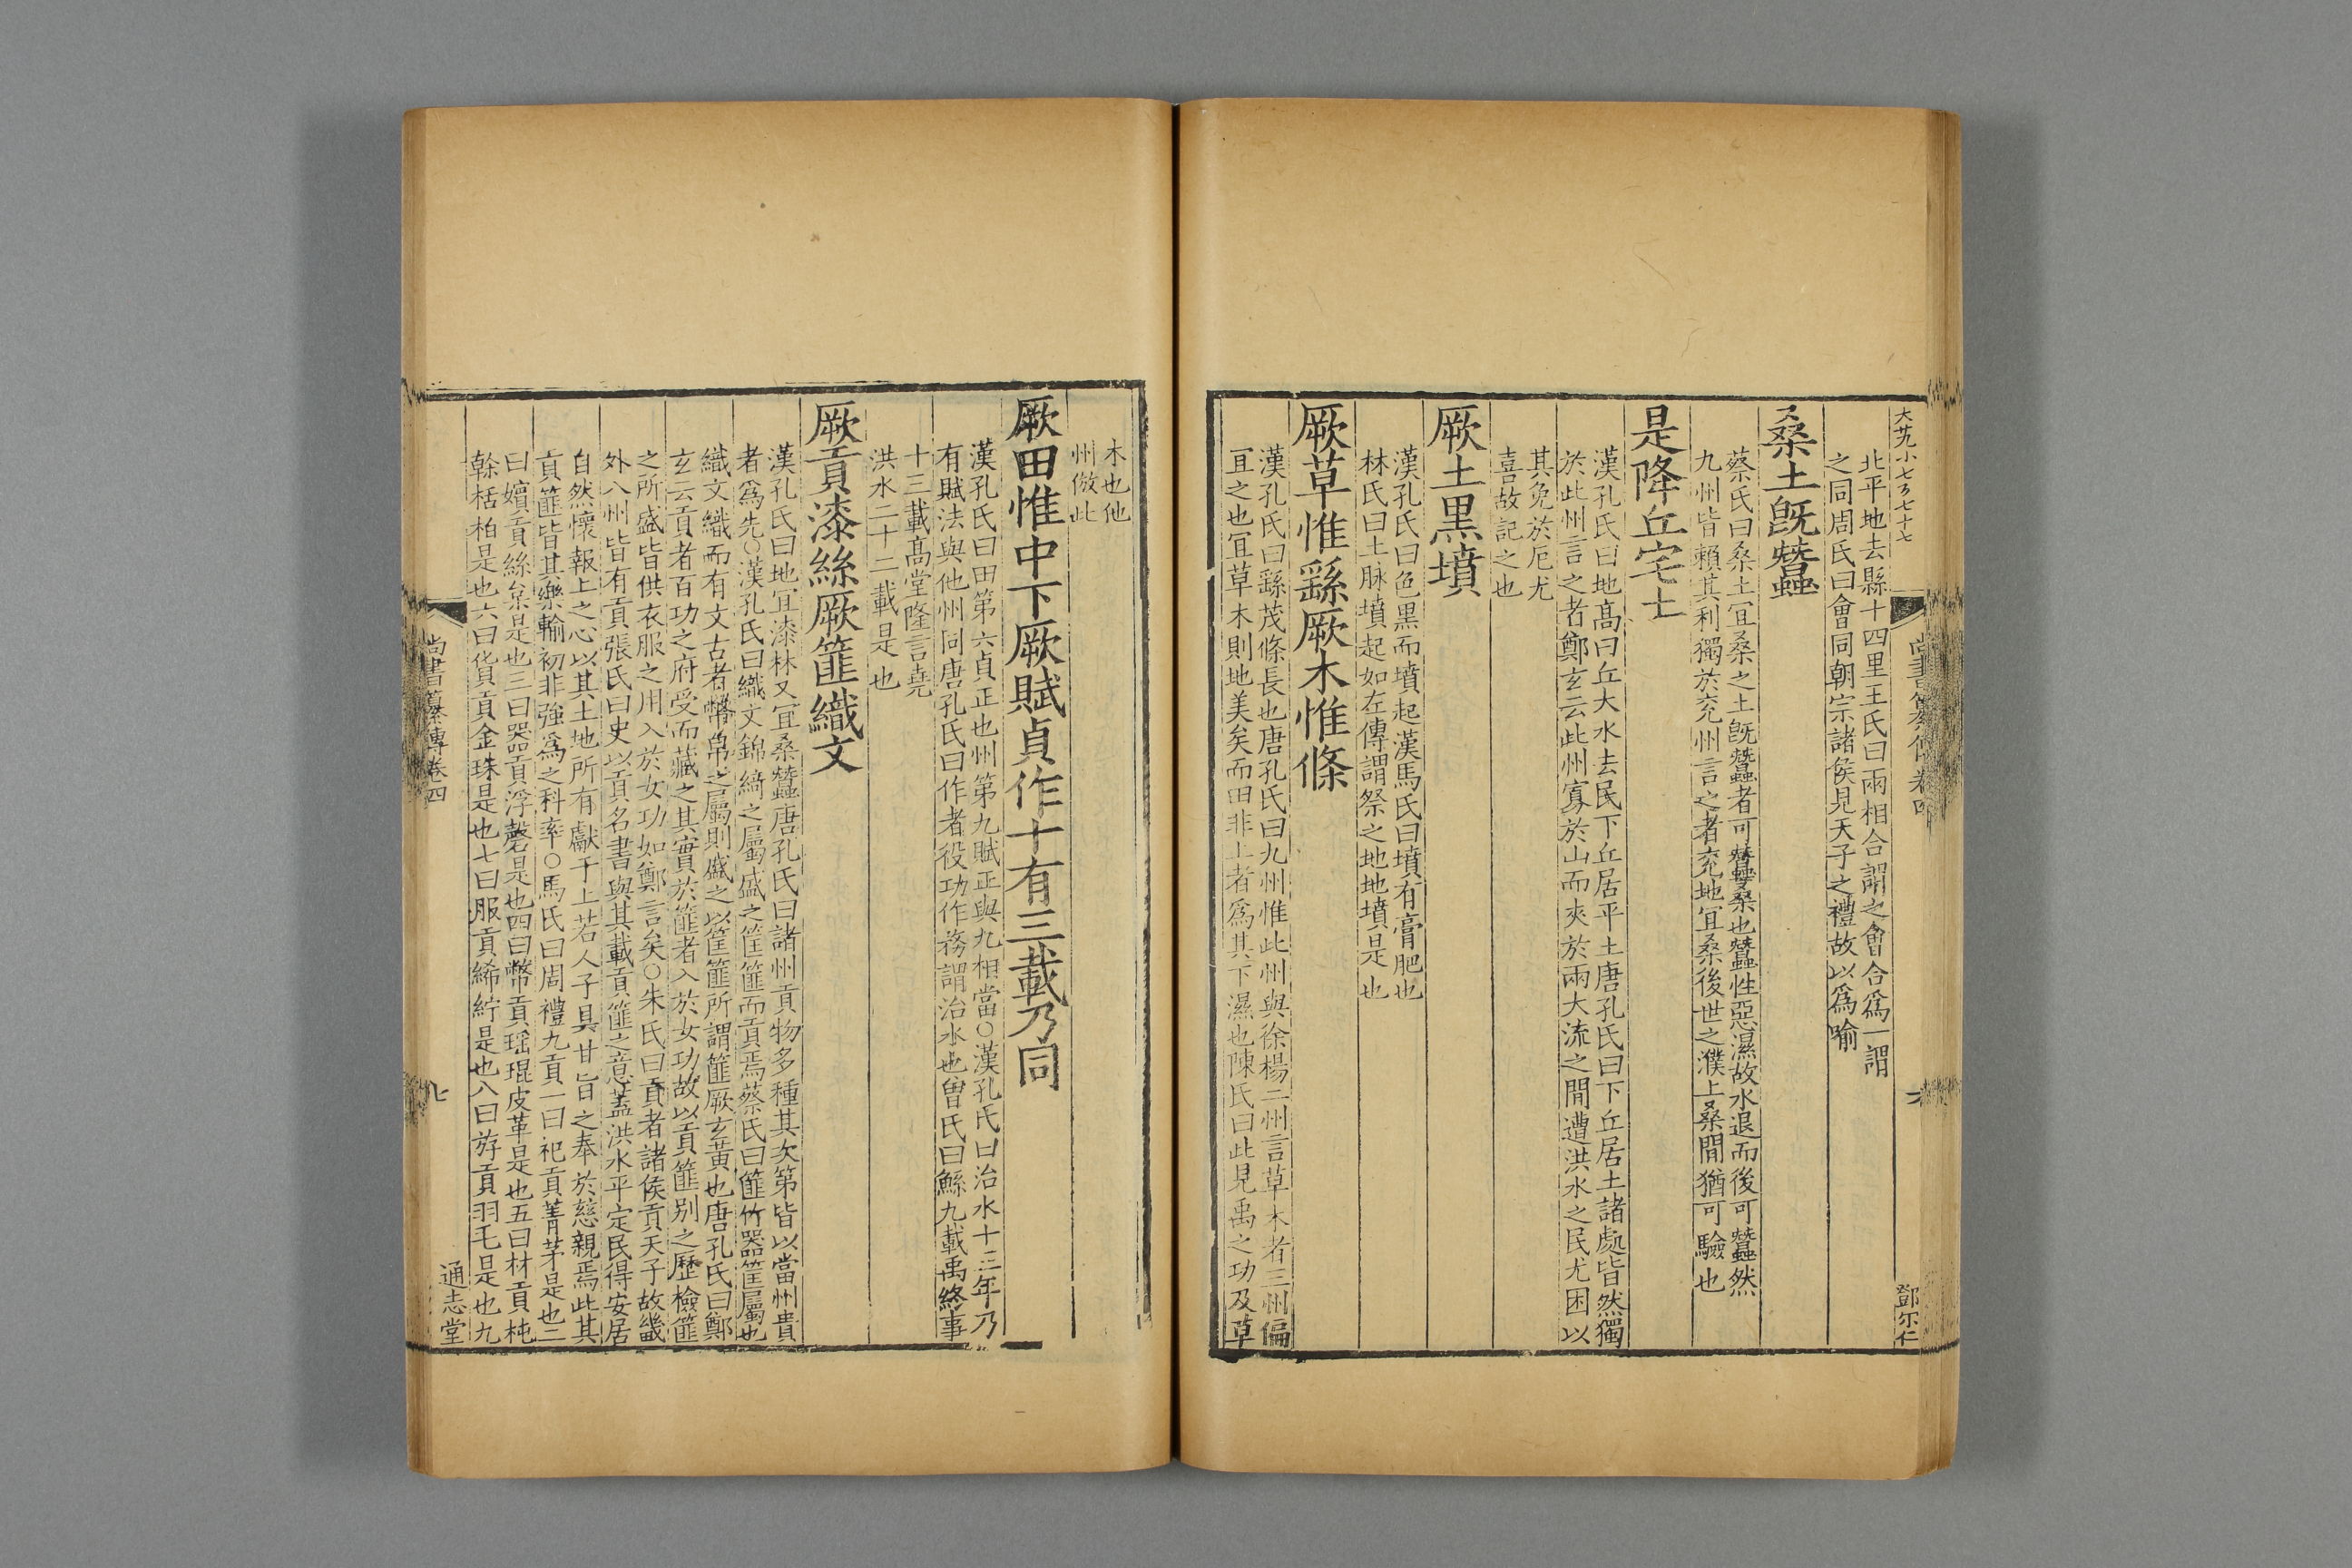 大廿九小七百七十七
北平地去縣十四里王氏曰兩相合謂之會合爲一謂
之同周氏曰會同朝宗諸侯見天子之禮故以爲喻
桑土旣蠶
蔡氏曰桑土宜桑之土旣蠶者可蠶桑也蠶性惡濕故水退而後可蠶然
九州皆賴其利獨於兖州言之者兖地宜桑後世之濮上桑間猶可驗也
是降丘宅土
漢孔氏曰地髙曰丘大水去民下丘居平土唐孔氏曰下丘居土諸處皆然獨
於此州言之者鄭玄云此州寡於山而夾於兩大流之間遭洪水之民尤困以
其免於厄尤
喜故記之也
厥土黒墳
漢孔氏曰色黒而墳起漢馬氏曰墳有膏肥也
林氏曰土脉墳起如左傳謂祭之地地墳是也
厥草惟繇厥木惟條
漢孔氏曰繇茂條長也唐孔氏曰九州惟此州與徐楊二州言草木者三州偏
宜之也宜草木則地美矣而田非上者爲其下濕也陳氏曰此見禹之功及草
尚書纂傳卷四
鄧尔仁
木也他
州倣此
厥田惟中下厥賦貞作十有三載乃同
漢孔氏曰田第六貞正也州第九賦正與九相當○漢孔氏曰治水十三年乃
有賦法與他州同唐孔氏曰作者役功作務謂治水也曾氏曰鯀九載禹終事
十三載髙堂隆言堯
洪水二十二載是也
厥貢漆絲厥篚織文
漢孔氏曰地宜漆林又宜桑蠶唐孔氏曰諸州貢物多種其次第皆以當州貴
者爲先○漢孔氏曰織文錦綺之屬盛之筐篚而貢焉蔡氏曰篚竹器筐屬也
織文織而有文古者幣帛之屬則盛之以筐篚所謂篚厥玄黃也唐孔氏曰鄭
玄云貢者百功之府受而藏之其實於篚者入於女功故以貢篚别之歷檢篚
之所盛皆供衣服之用入於女功如鄭言矣○朱氏曰貢者諸侯貢天子故畿
外八州皆有貢張氏曰史以貢名書與其載貢篚之意蓋洪水平定民得安居
自然懷報上之心以其土地所有獻于上若人子具甘旨之奉於慈親焉此其
貢篚皆其樂輸初非強爲之科率○馬氏曰周禮九貢一曰祀貢菁茅是也二
曰嬪貢絲枲是也三曰器貢浮磬是也四曰幣貢瑶琨皮革是也五曰材貢杶
榦栝柏是也六曰貨貢金珠是也七曰服貢絺紵是也八曰斿貢羽毛是也九
尚書纂傳卷四
九
通志堂